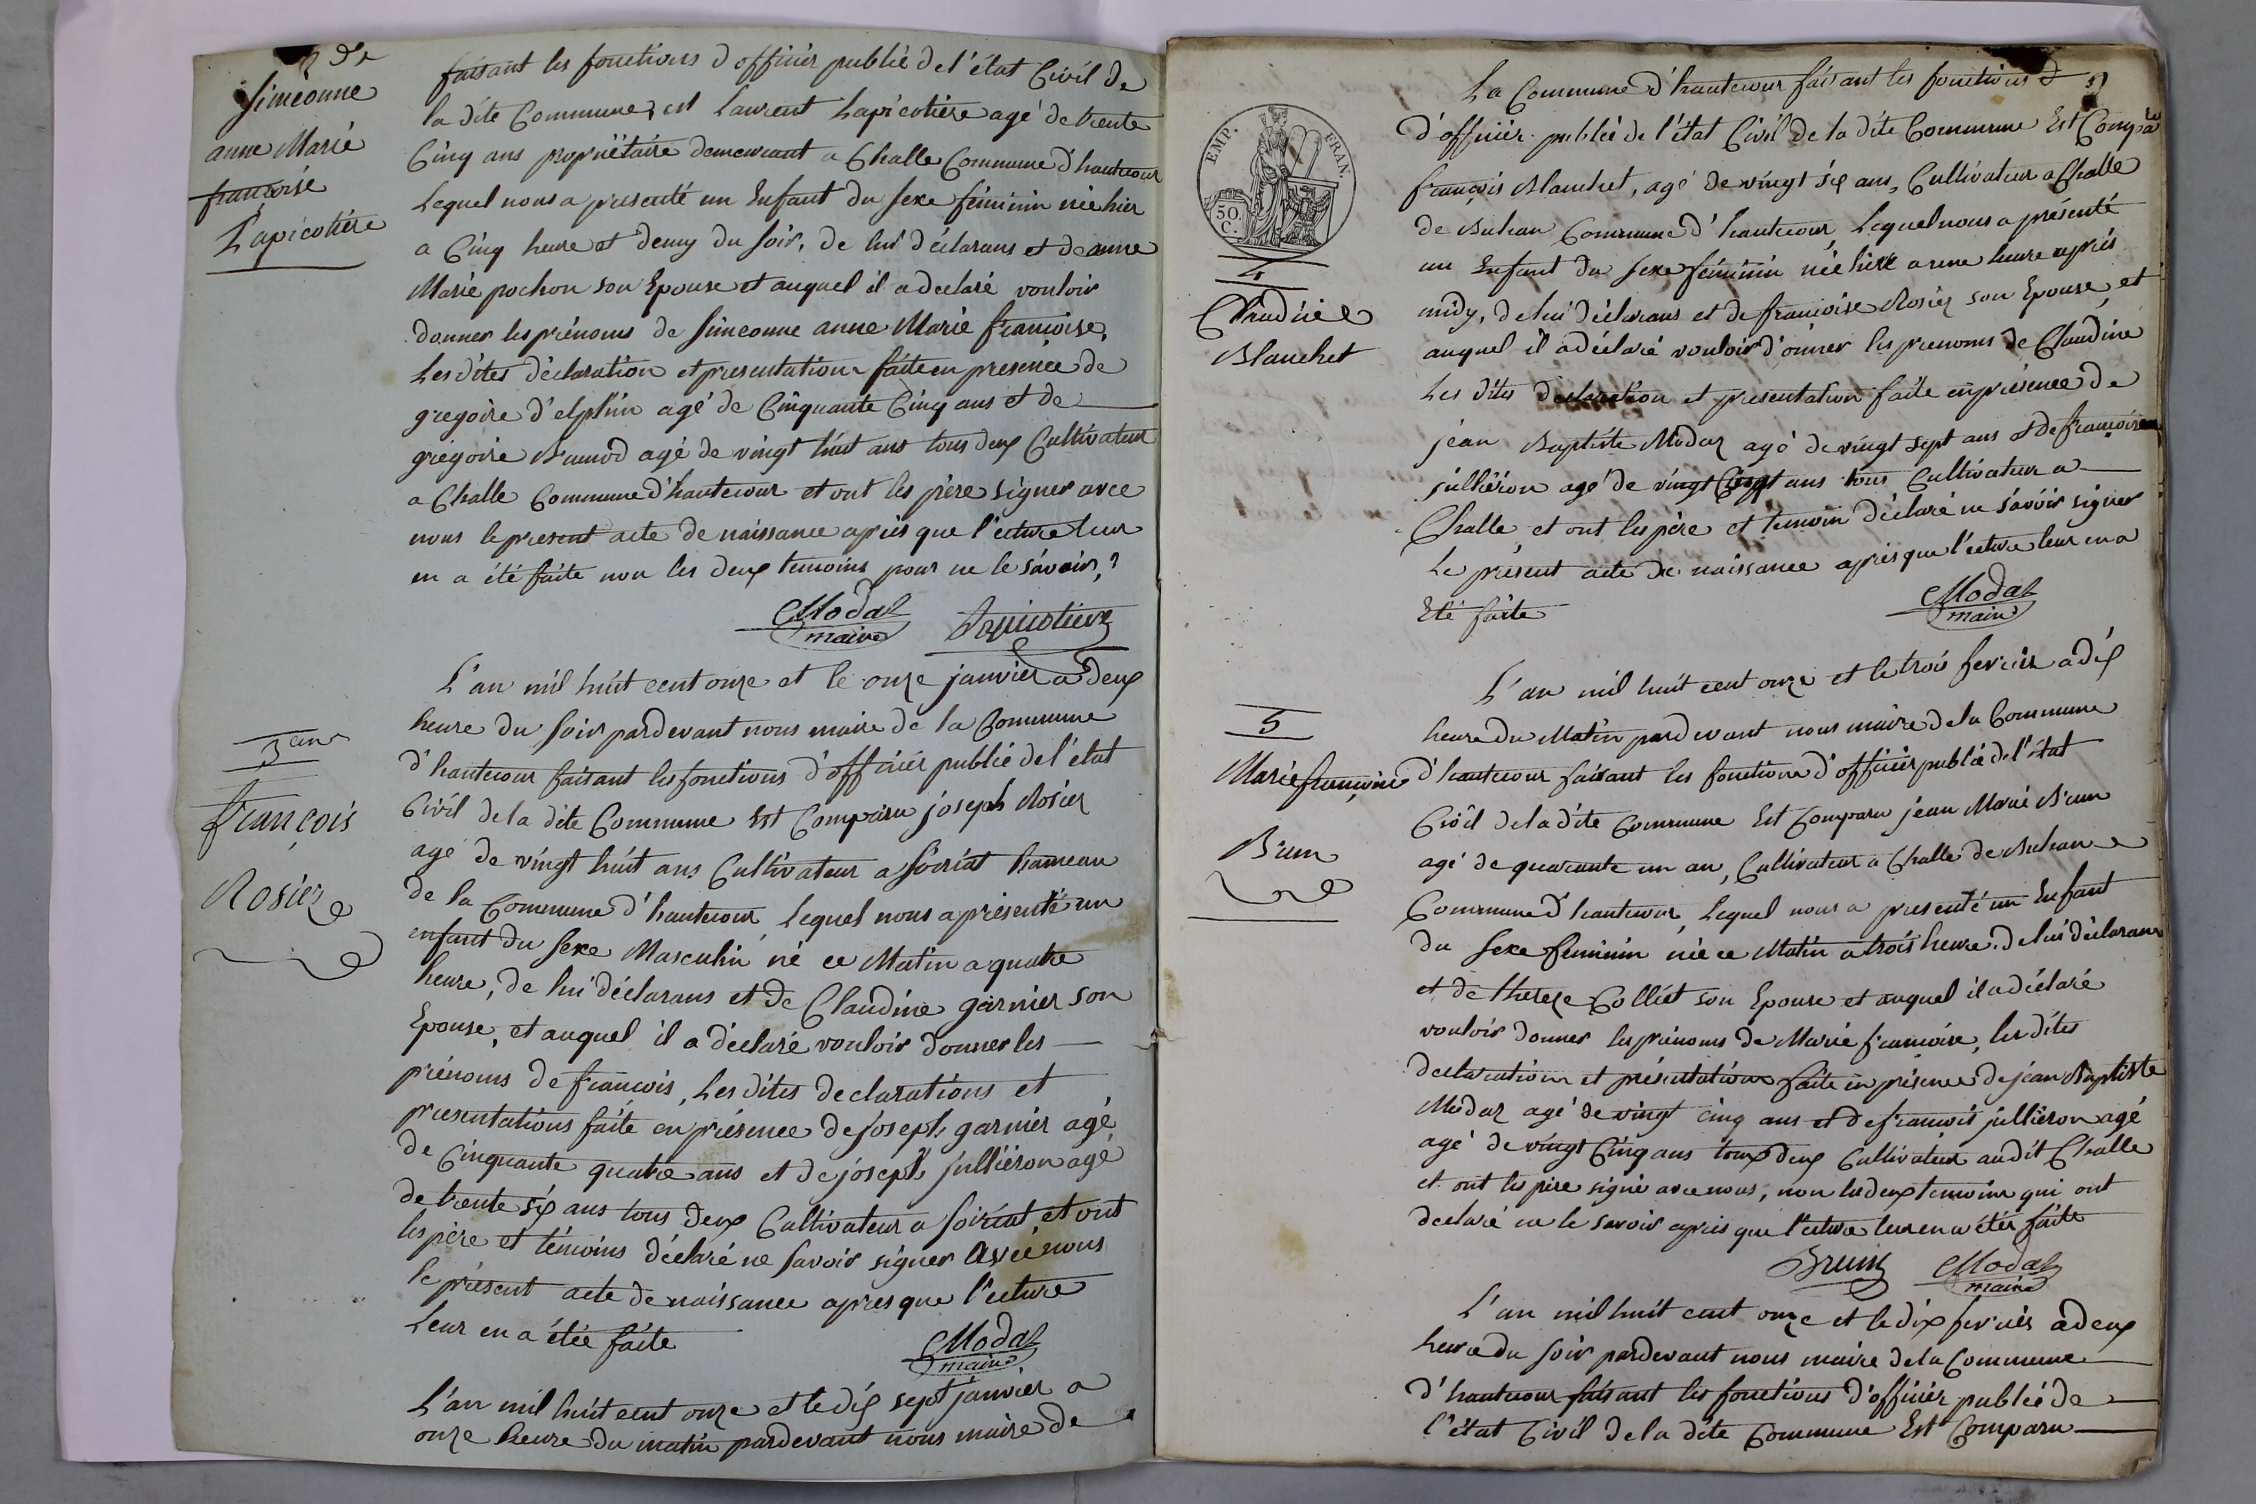 2 de
Simeonne
anne Marie
françoise
Lapicotière
faisant les fonctions d officier publié de l'état Civil de
la dite Commune, est Laurent Lapicotiere agé de trente
Cinq ans propriétaire demeurant a Challe Commune d'hautecour
Lequel nous a presenté un Enfant du sexe féminin née hier
a Cinq heure et demy du soir, de lui déclarans et de anne
Marie pochon son Epouse et auquel il a declaré vouloir
donner les prénoms de Simeonne anne Marie françoise,
Les dites déclaration et presentation faite en presence de
gregoire d'elphin agé de Cinquante Cinq ans et de
gregoire agé de vingt huit ans tous deux Cultivateur
a Challe Commune d'hautecour et ont les père signer avec
nous le present acte de naissance après que l'ecture leur
en a été faite non les deux temoins pour ne le sávoir,
Modas Lapicotiere
maire
3eme
françois
Rosier
L'an mil huit cent onze et le onze janvier a deux
heure du soir pardevant nous maire de la Commune
d'hautecour faisant les fonctions d'officier publié de l'état
Civil de la dite Commune Est Comparu joseph Rosier
agé de vingt huit ans Cultivateur a Soiriat hameau
de la Commune d'hautecour, Lequel nous a présenté un
enfant du sexe Masculin né ce Matin a quatre
heure, de lui déclarans et de Claudine garnier son
Epouse, et auquel il a déclaré vouloir donner les
prénoms de françois, Les dites declarations et
presentations faite en présence de joseph garnier agé
de Cinquante quatre ans et de joseph jullieron agé
de trente six ans tous deux Cultivateur a soiriat, et ont
les père et témoins déclaré ne savoir signer avec nous
le présent acte de naissance apres que l'ecture
Leur en a étée faite
Modas
maire
L'an mil huit cent onze et le dix sept janvier a
onze heure du matin pardevant nous maire de
La Commune d'hautecour faisant les fonctions d
d'officier publié de l'état Civil de la dite Commune Est Comparu
françois Blanchet, agé de vingt six ans, Cultivateur a Challe
de Bohan Commune d'hautecour, Lequel nous a présenté
un Enfant du sexe féminin née hier a une heure après
midy, de lui déclarans et de françoise Rosier son Epouse, et
auquel il a déclaré vouloir donner les prenoms de Claudine
Les dites déclaration et presentation faite en présence de
jean Baptiste Modas agé de vingt sept ans et de françois
jullieron agé de vingt Cinq ans tous Cultivateur a
Challe, et ont les père et temoin déclaré ne sávoir signer
Le présent acte de naissance apres que l'ecture leur en a
Eté faite
Modas
maire
EMP. FRAN.
50.
C.
4
Claudine
Blanchet
5
Marie françoise
Brun
L'an mil huit cent onze et le trois fevrier a dix
heure du Matin pardevant nous maire de la Commune
d'hautecour faisant les fonctions d'officier publié de l'état
Civil de la dite Commune Est Comparu jean Marie Brun
agé de quarante un an, Cultivateur a Challe de Bohan
Commune d'hautecour, Lequel nous a presenté un Enfant
du sexe feminin née ce Matin a trois heure de lui déclarans
et de thereze Colliet son Epouse et auquel il a déclaré
vouloir donner les prénoms de Marie françoise, les dites
declarations et présentations faite en présence de jéan Baptiste
Modas agé de vingt cinq ans et de françois jullieron agé
agé de vingt Cinq ans tous deux Cultivateur au dit Challe
et ont les père signé avec nous, non les deux temoins qui ont
declaré ne le savoir apris que l'ecture leur en a étée faite
Brun Modas
maire
L'an mil huit cent onze et le dix fevrier a deux
heure du soir pardevant nous maire de la Commune
d'hautecour faisant les fonctions d'officier publié de
l'état Civil de la dite Commune Est Comparu